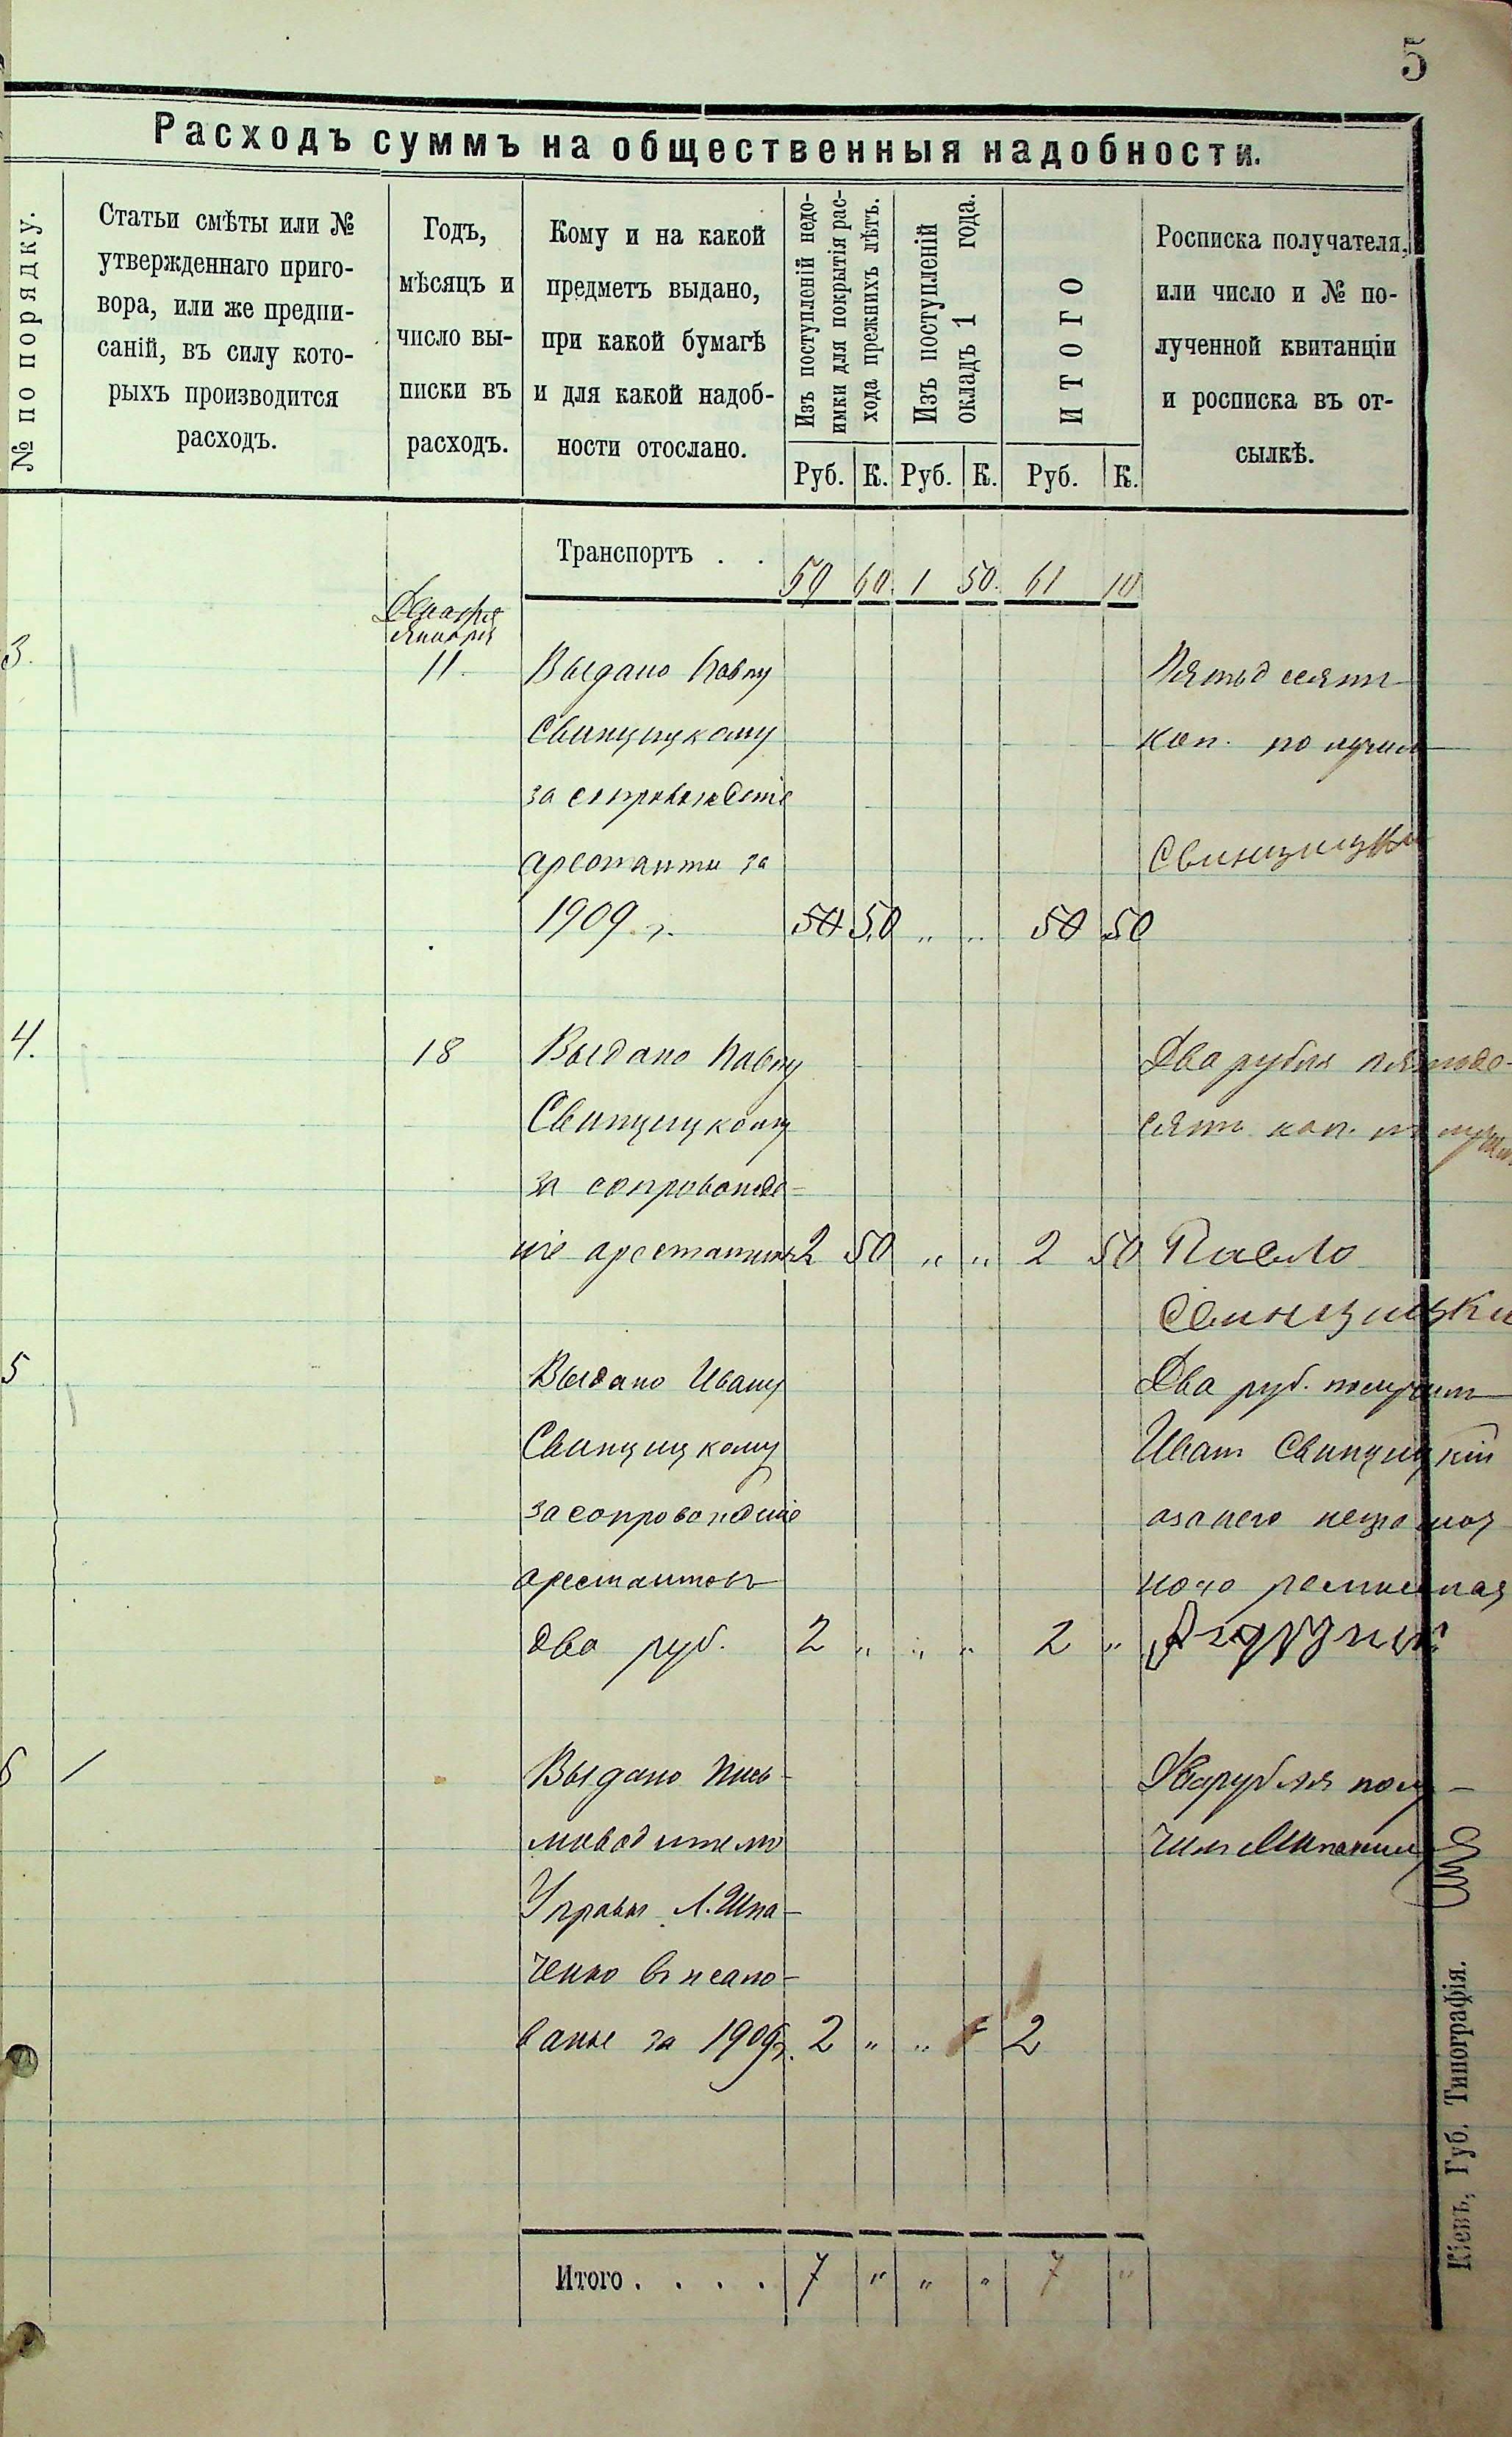 5
Расходъ суммъ на общественныя надобности.
№ по порядку.
Статьи смѣты или №
утвержденнаго приго-
вора, или же предпи-
саній, въ силу кото-
рыхъ производится
расходъ.
Годъ,
мѣсяцъ и
число вы-
писки въ
расходъ.
Кому и на какой
предметъ выдано,
при какой бумагѣ
и для какой надоб-
ности отослано.
Изъ поступленій недо-
имки для покрытія рас-
хода прежнихъ лѣтъ.
Изъ поступленій
окладъ 1 года.
ИТОГО
Росписка получателя,
или число и № по-
лученной квитанціи
и росписка въ от-
сылкѣ.
Руб. К. Руб. К. Руб. К.
Транспортъ . . 59 60. 1 50. 61 10
Января
3. 11. Выдано Павлу
Свинцицкому
за сопровожденіе
арестанта за
1909 г. 50 50 „ „ 50 50
Пятьдесятъ
коп. получилъ
Свинцицки
4. 18 Выдано Павлу
Свинцицкому
за сопровожде-
ніе арестантовъ 2 50 „ „ 2 50
Два рубля пятьде-
сятъ коп. получилъ
Павло
Свинцицки
5 Выдано Ивану
Свинцицкому
за сопровожденіе
арестантовъ
два руб. 2 „ „ „ 2 „
Два руб. получилъ
Иванъ Свинцицкій
а за него неграмот
ного росписался
6 Выдано Пись-
моводителю
Управы Л. Шпа-
ченко
за 1909 г. 2 „ „ 2
Два рубля полу-
чилъ
Итого . . . . 7 „ „ „ 7 „
Кіевъ, Губ. Типографія.